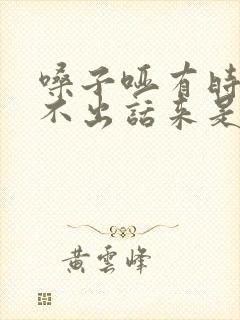 嗓子哑有时
不出话来是
黄雲峰